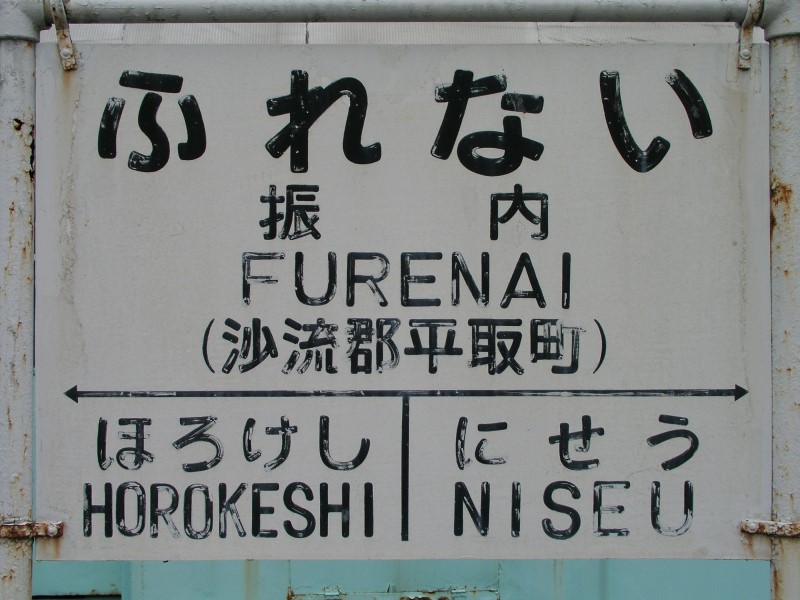 ふれない
振内
FURENAI
(沙流郡平取町)
ほろけし にせう
HOROKESHI NISEU